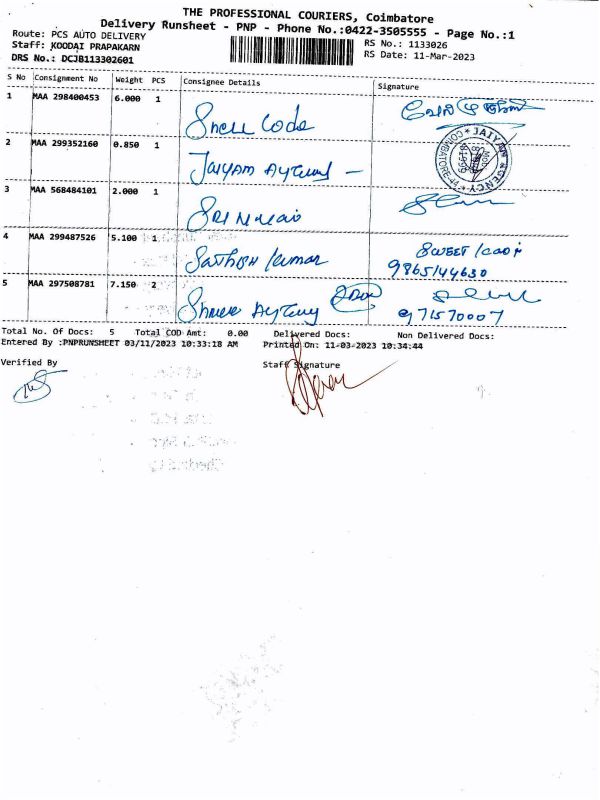 THE PROFESSIONAL COURIERS, Coimbatore
Delivery Runsheet - PNP - Phone No.:0422-3505555 - Page No.:1
Route: PCS AUTO DELIVERY
RS No.: 1133026
Staff: KOODAI PRAPAKARN
RS Date: 11-Mar-2023
DRS No.: DCJB113302601
S No Consignment No Weight PCS Consignee Details Signature
1 MAA 298400453 6.000 1
2 MAA 299352160 0.850 1 JAIYAM
JAIYAM AGENCY * COIMBATORE *
3 MAA 568484101 2.000 1 SRI
4 MAA 299487526 5.100 1 Sathish Kumar
9865144630
5 MAA 297508781 7.150 2
971570007
Total No. Of Docs: 5 Total COD Amt: 0.00 Delivered Docs: Non Delivered Docs:
Entered By :PNPRUNSHEET 03/11/2023 10:33:18 AM Printed On: 11-03-2023 10:34:44
Verified By Staff Signature